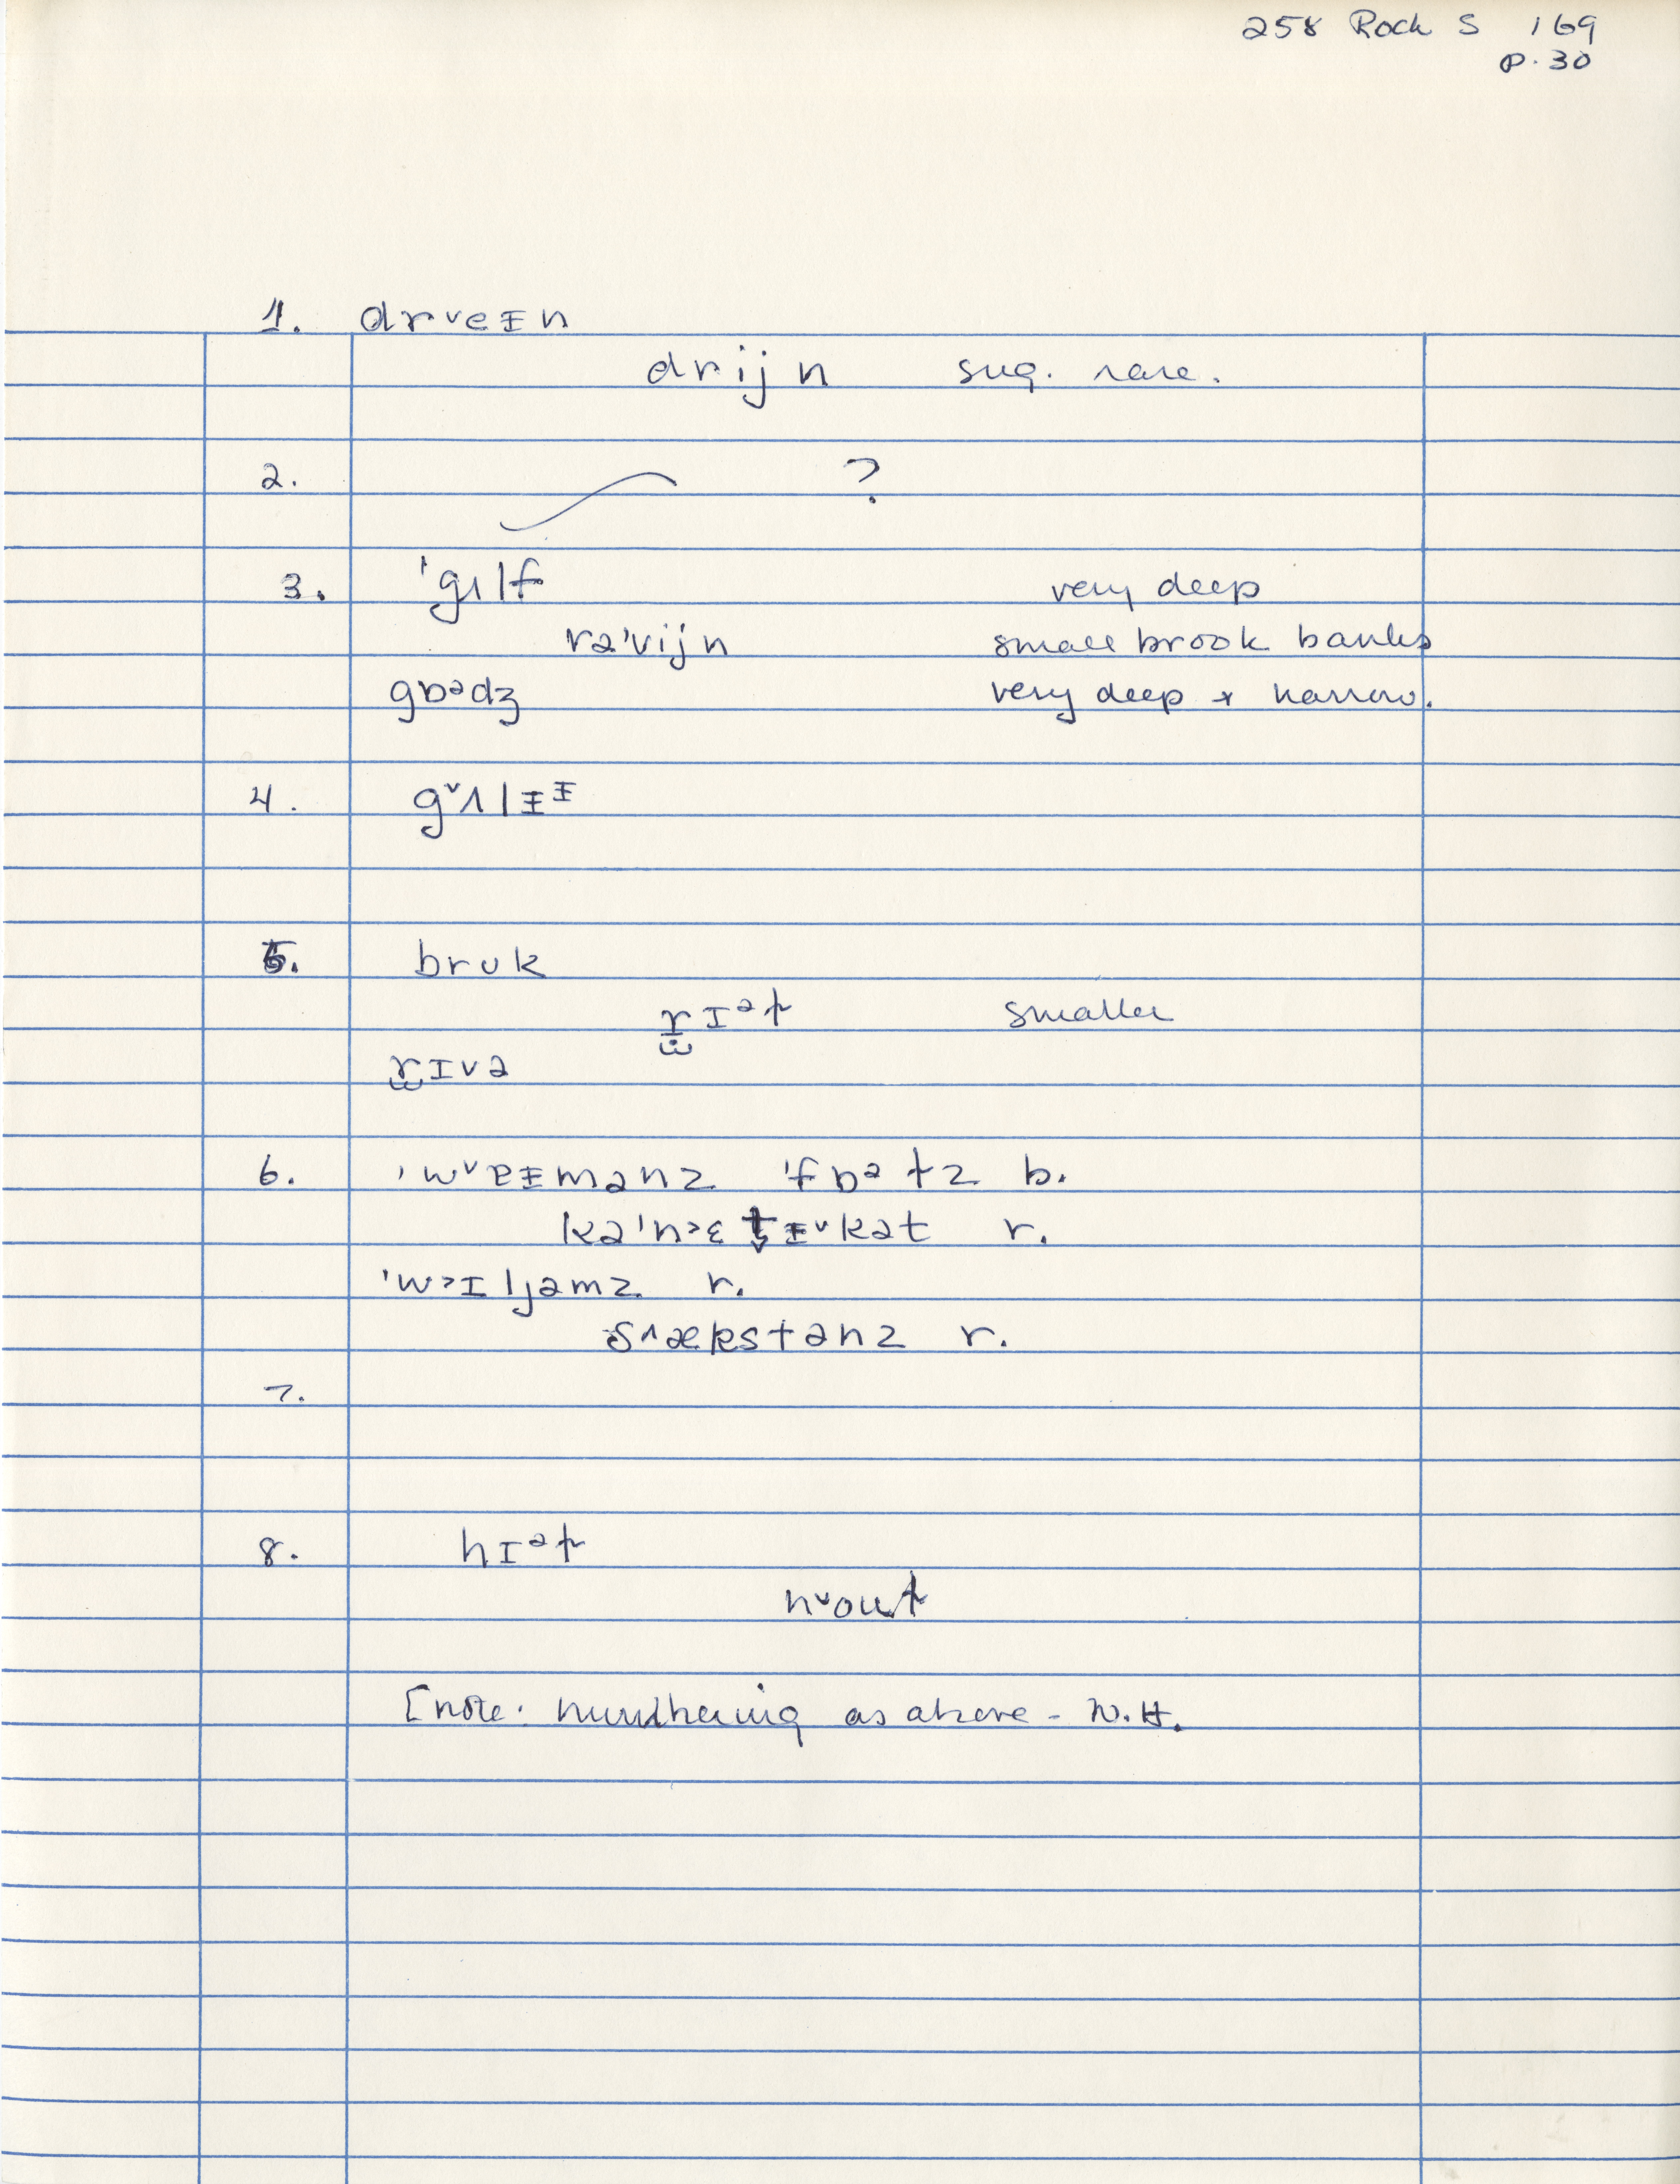 258 Rock S 169
p. 30
1. drˇeᵻn
drijn sug. rare.
2. ?
3. 'gɪlf very deep
rə'vijn small brook banks
gɒᵊdʒ very deep + narrow.
4. gˇʌlᵻᵻ
5. bruk
rɪᵊt smaller
rɪvə
6. 'wˇɐᵻmənz 'fɒᵊtz b.
kə'n>ɛtᵻˇkət r.
'w>ɪljəmz r.
s^ækstənz r.
7.
8. nɪᵊt
nˇout
[note: numbering as above - N.H.